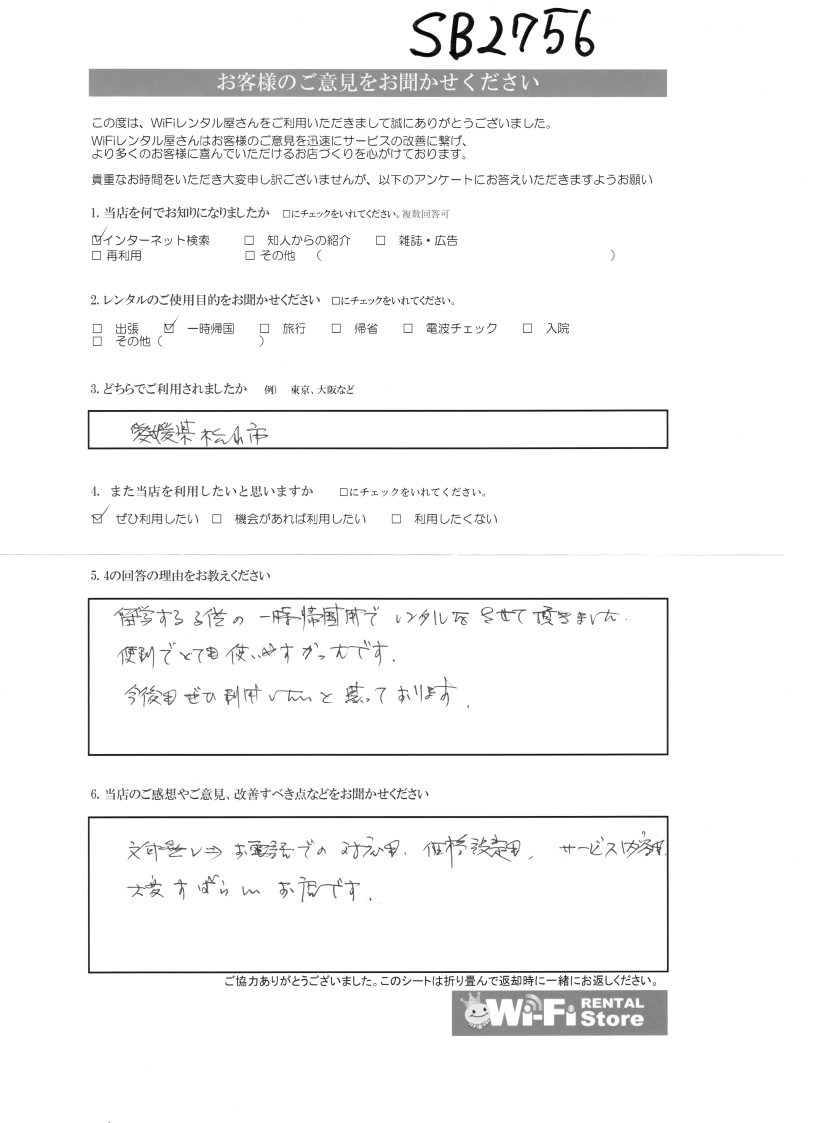 SB2756
お客様のご意見をお聞かせください
この度は、WiFiレンタル屋さんをご利用いただきまして誠にありがとうございました。
WiFiレンタル屋さんはお客様のご意見を迅速にサービスの改善に繋げ、
より多くのお客様に喜んでいただけるお店づくりを心がけております。
貴重なお時間をいただき大変申し訳ございませんが、以下のアンケートにお答えいただきますようお願い
1. 当店を何でお知りになりましたか □にチェックをいれてください。複数回答可
☑インターネット検索 □ 知人からの紹介 □ 雑誌・広告
□ 再利用 □ その他 ( )
2. レンタルのご使用目的をお聞かせください □にチェックをいれてください。
□ 出張 ☑ 一時帰国 □ 旅行 □ 帰省 □ 電波チェック □ 入院
□ その他 ( )
3. どちらでご利用されましたか 例) 東京、大阪など
愛媛県松山市
4. また当店を利用したいと思いますか □にチェックをいれてください。
☑ ぜひ利用したい □ 機会があれば利用したい □ 利用したくない
5. 4の回答の理由をお教えください
留学する子供の一時帰国用でレンタルをさせて頂きました。
便利でとても使いやすかったです。
今後もぜひ利用したいと思っております。
6. 当店のご感想やご意見、改善すべき点などをお聞かせください
文句無し⇒お電話での対応も、価格設定も、サービス内容も、
大変すばらしいお店です。
ご協力ありがとうございました。このシートは折り畳んで返却時に一緒にお返しください。
Wi-Fi RENTAL Store